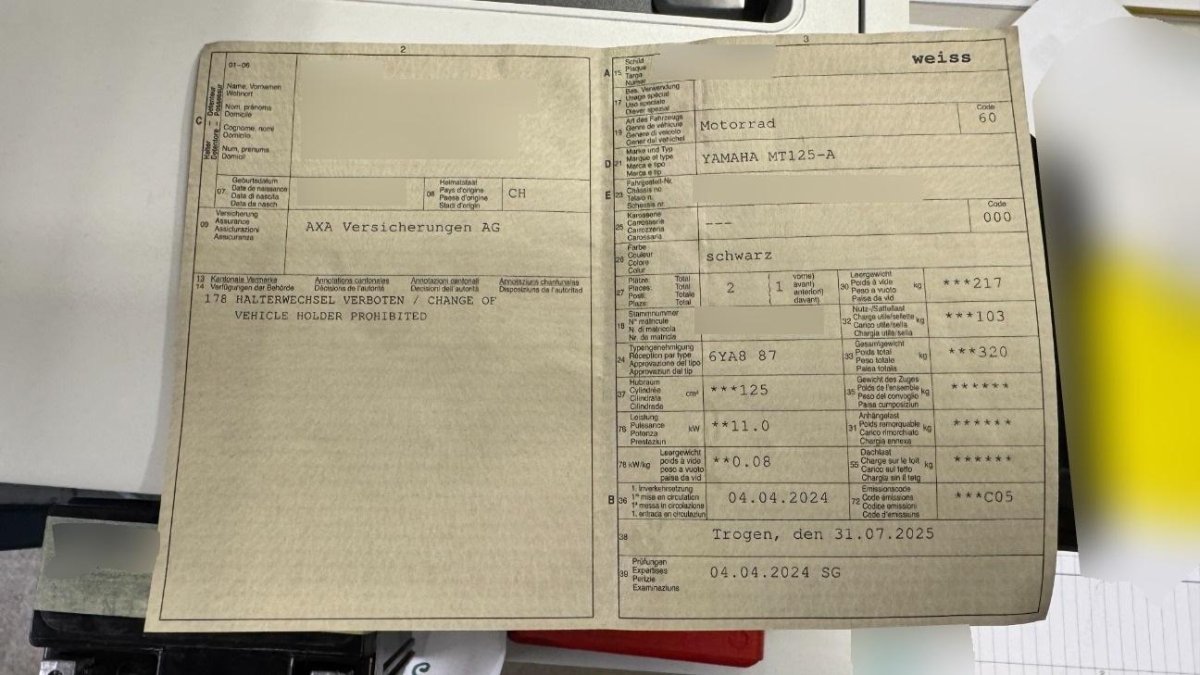 2
01-06
C
Halter - Détenteur
Detentore - Possessur
Name, Vornamen
Wohnort
Nom, prénoms
Domicile
Cognome, nomi
Domicilio
Num, prenums
Domicil
07
Geburtsdatum
Date de naissance
Data di nascita
Data da nasch.
08
Heimatstaat
Pays d'origine
Paese d'origine
Stadi d'origin
CH
09
Versicherung
Assurance
Assicurazioni
Assicuranza
AXA Versicherungen AG
13 Kantonale Vermerke Annotations cantonales Annotazioni cantonali Annotaziuns chantunalas
14 Verfügungen der Behörde Décisions de l'autorité Decisioni dell'autorità Disposiziuns da l'autoritad
178 HALTERWECHSEL VERBOTEN / CHANGE OF
VEHICLE HOLDER PROHIBITED
3
A 15
Schild
Plaque
Targa
Numer
weiss
17
Bes. Verwendung
Usage spécial
Uso speciale
Diever spezial
19
Art des Fahrzeugs
Genre de véhicule
Genere di veicolo
Gener dal vehichel
Motorrad
Code
60
D 21
Marke und Typ
Marque et type
Marca e tipo
Marca e tip
YAMAHA MT125-A
E 23
Fahrgestell-Nr.
Châssis no
Telaio n.
Schassis nr.
25
Karosserie
Carrosserie
Carrozzeria
Carossaria
---
Code
000
26
Farbe
Couleur
Colore
Colur
schwarz
27
Plätze: Total
Places: Total
Posti: Totale
Plazs: Total
2
1
vorne)
avant)
anteriori)
davant)
30
Leergewicht
Poids à vide
Peso a vuoto
Paisa da vid
kg
***217
18
Stammnummer
N° matricule
N. di matricola
Nr. da matricla
32
Nutz-/Sattellast
Charge utile/sellette
Carico utile/sella
Chargia utile/sella
kg
***103
24
Typengenehmigung
Réception par type
Approvazione del tipo
Approvaziun dal tip
6YA8 87
33
Gesamtgewicht
Poids total
Peso totale
Paisa totala
kg
***320
37
Hubraum
Cylindrée
Cilindrata
Cilindrada
cm³
***125
35
Gewicht des Zuges
Poids de l'ensemble
Peso del convoglio
Paisa cumposiziun
kg
******
76
Leistung
Puissance
Potenza
Prestaziun
kW
**11.0
31
Anhängelast
Poids remorquable
Carico rimorchiato
Chargia annexa
kg
******
78 kW/kg
Leergewicht
poids à vide
peso a vuoto
paisa da vid
**0.08
55
Dachlast
Charge sur le toit
Carico sul tetto
Chargia sin il tetg
kg
******
B 36
1. Inverkehrsetzung
1re mise en circulation
1a messa in circolazione
1. entrada en circulaziun
04.04.2024
72
Emissionscode
Code émissions
Codice emissioni
Code d'emissiuns
***C05
38
Trogen, den 31.07.2025
39
Prüfungen
Expertises
Perizie
Examinaziuns
04.04.2024 SG